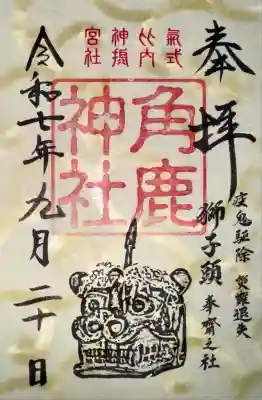 奉拝
疫鬼駆除 災難退失
獅子頭 奉齋之社
氣比
神宮
式内
摂社
角鹿
神社
令和七年九月二十日